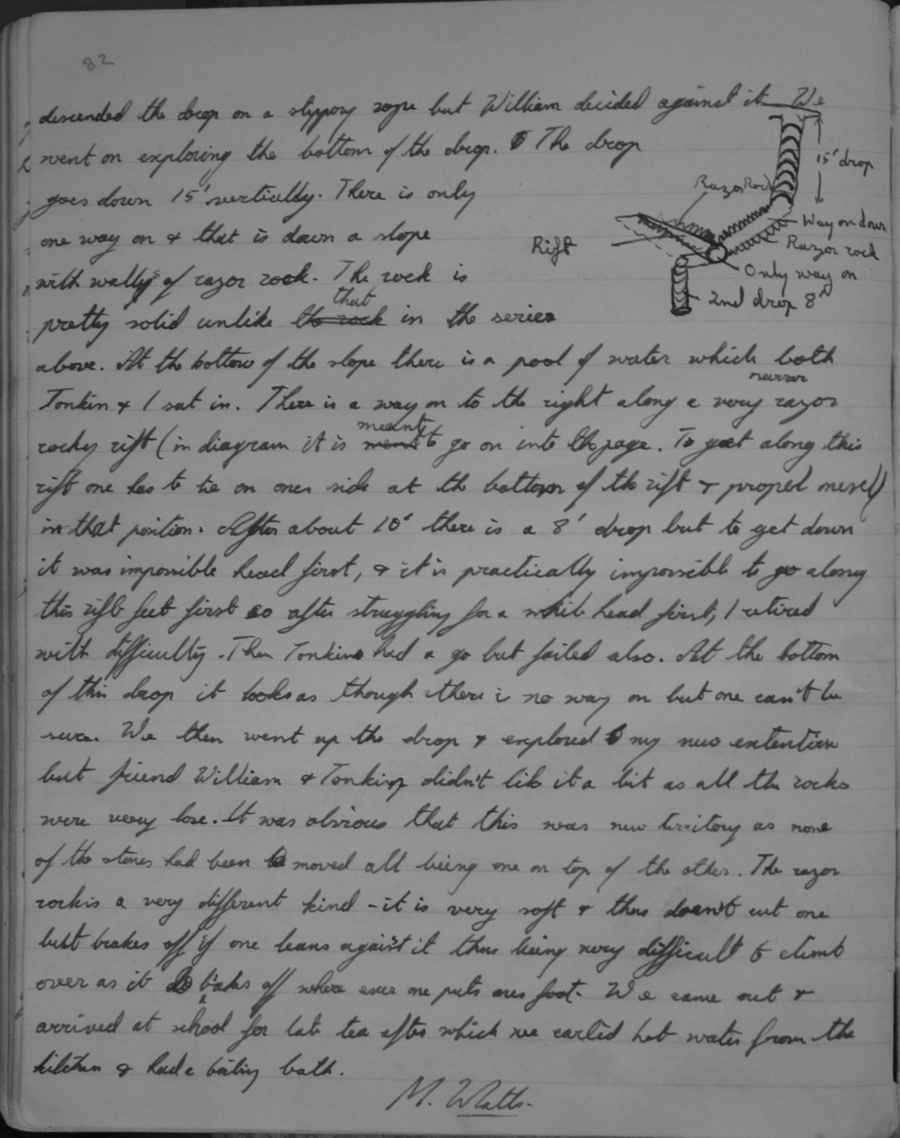 82
descended the drop on a slippory rope but William decided against it. We
went on exploring the bottom of the drop. The drop
goes down 15' vertically. There is only
one way on & that is down a slope
with walls of razor rock. The rock is
pretty solid unlike the rock that in the series
above. At the bottom of the slope there is a pool of water which both
Tonkin & I sat in. There is a way on to the right along a very narrow razor
rocky rift (in diagram it is meant to go on into the page. To get along this
rift one has to lie on ones side at the bottom of the rift & propel oneself)
in that position. After about 10' there is a 8' drop but to get down
it was impossible head first, & it is practically impossible to go along
this rift feet first so after struggling for a while head first, I retired
with difficulty. Then Tonkin had a go but failed also. At the bottom
of this drop it looks as though there is no way on but one can't be
sure. We then went up the drop & explored my new extention
but friend William & Tonkin didn't like it a bit as all the rocks
were very lose. It was obvious that this was new territory as none
of the stones had been moved all being one on top of the other. The razor
rock is a very different kind - it is very soft & thus doesn't cut one
but brakes off if one leans against it thus being very difficult to climb
over as it brakes off where ever one puts ones foot. We came out &
arrived at school for late tea after which we carted hot water from the
kitchen & had a boiling bath.
M. Watts.
15' drop
Razor Rock
Way on down
Rift
Razor rock
Only way on
2nd drop 8'